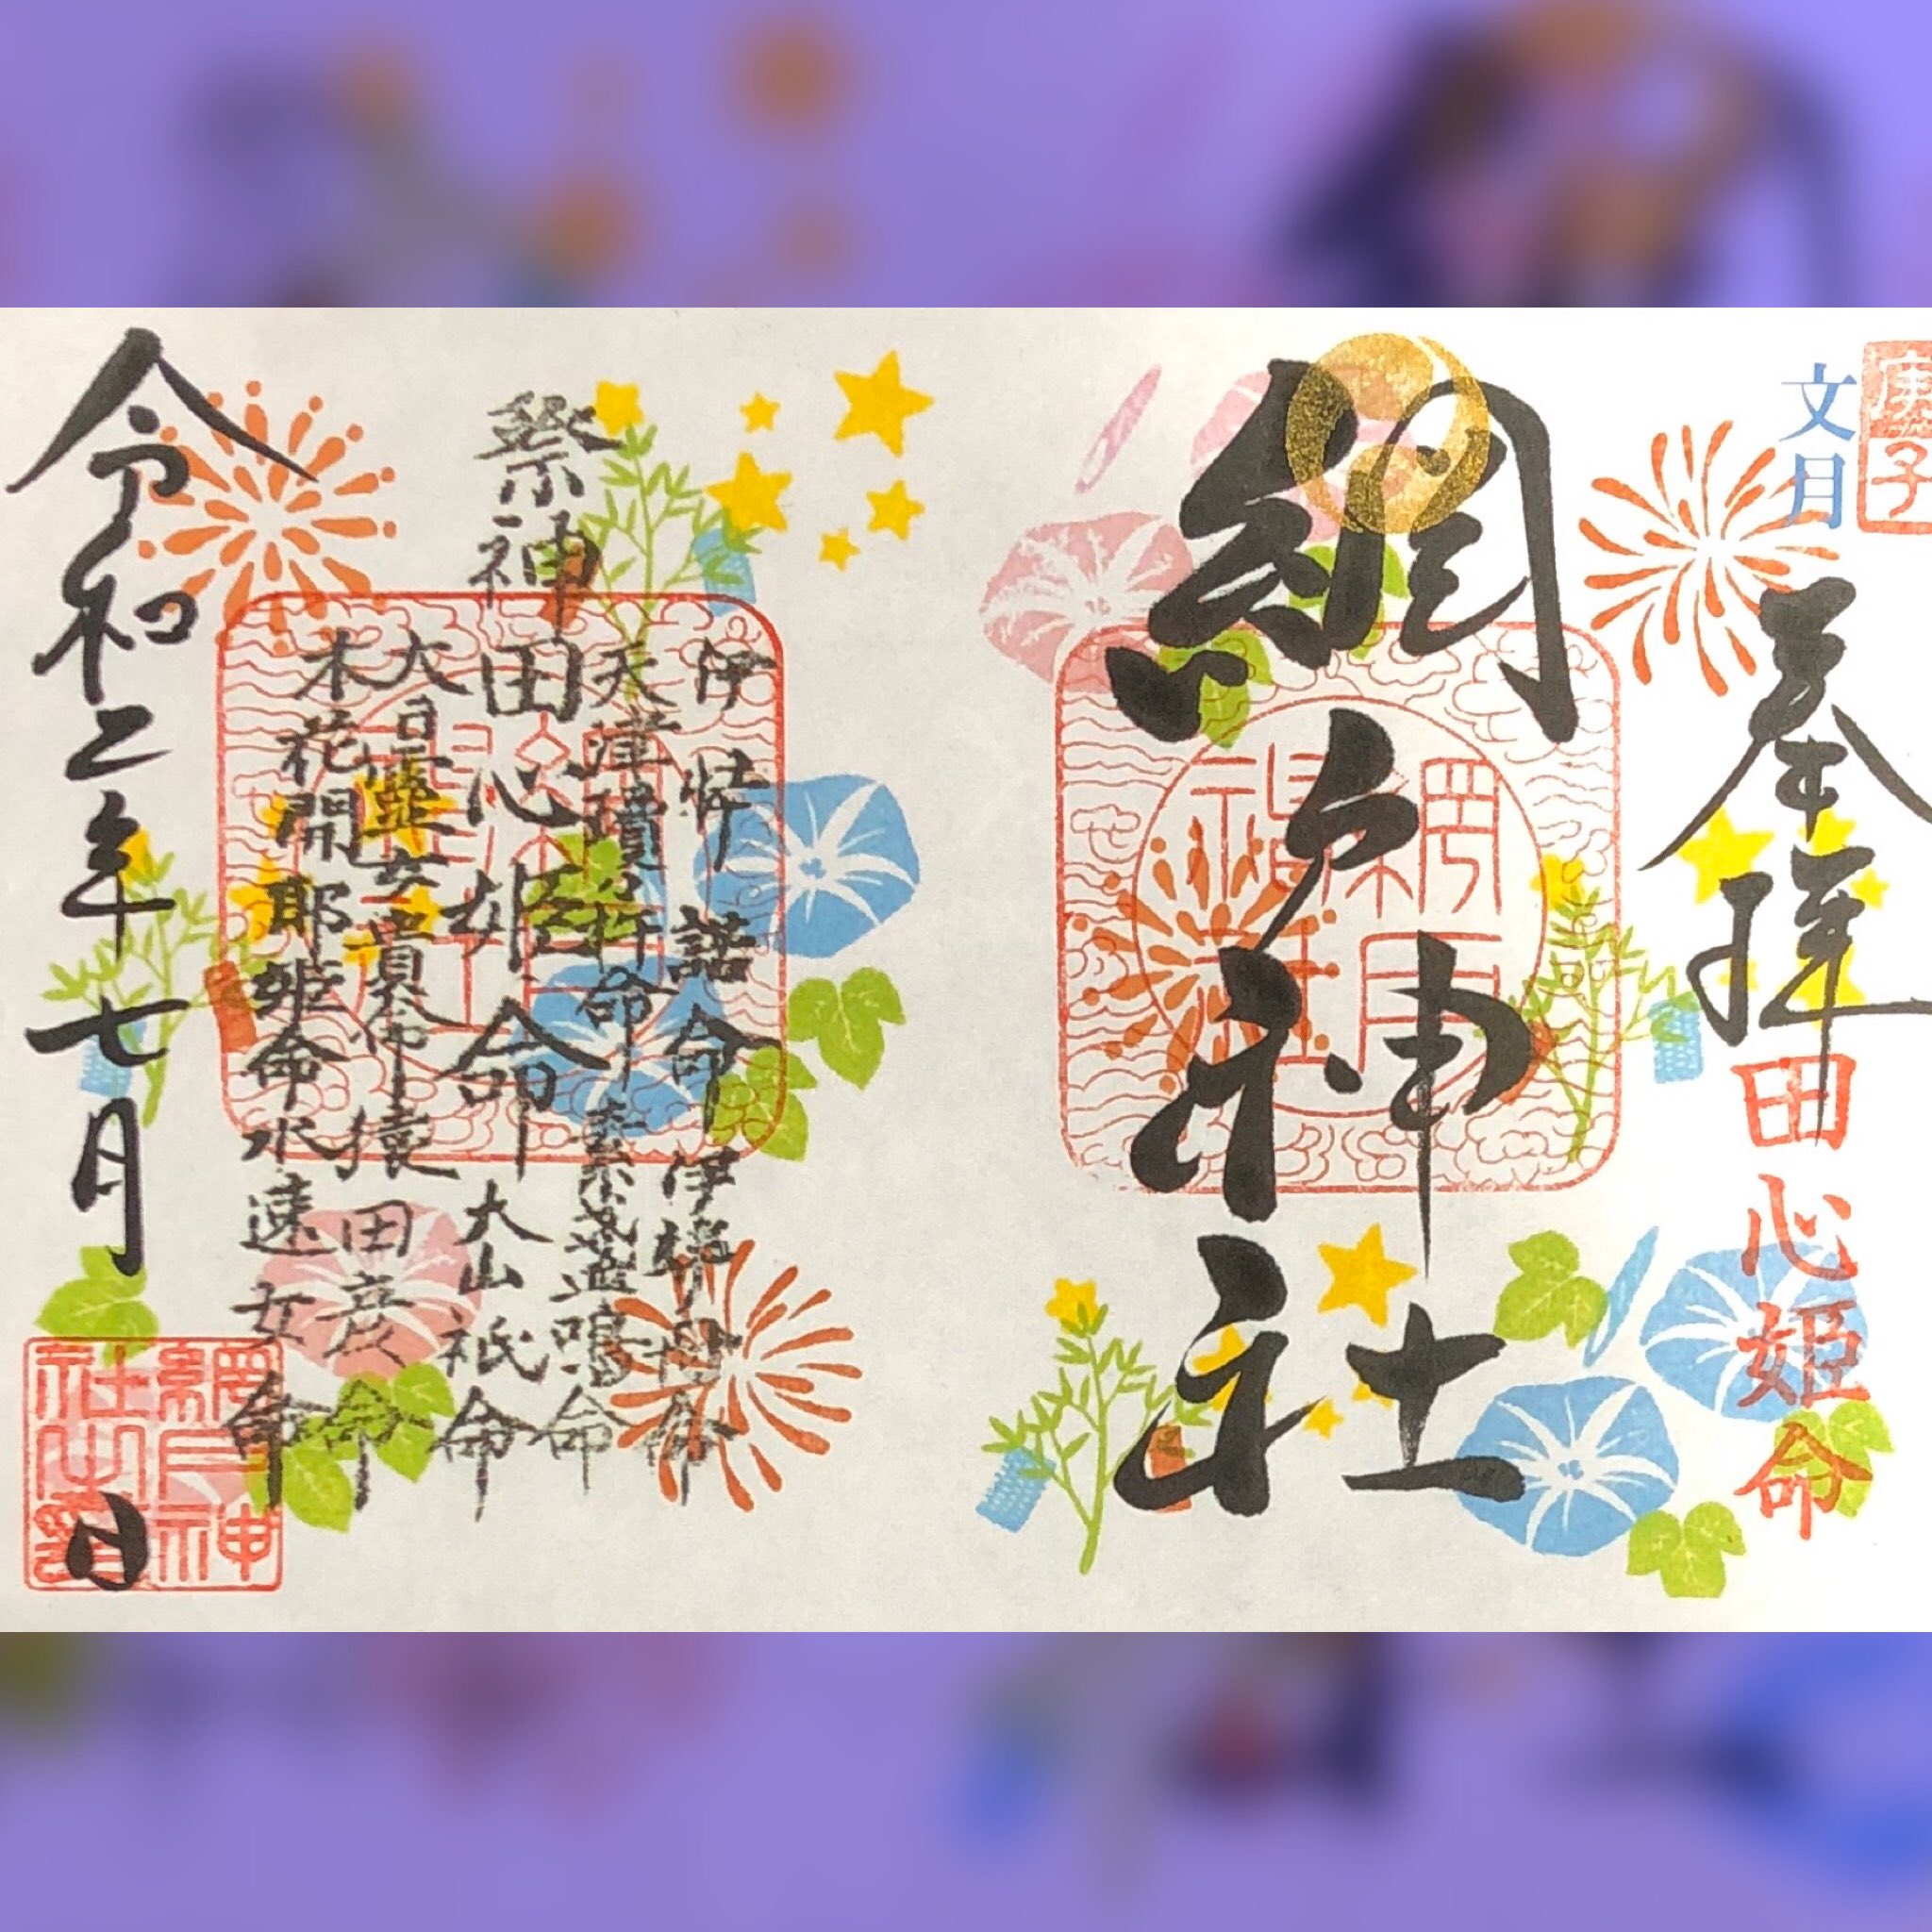 庚子
文月
奉拝
田心姫命
網戸神社
祭神
伊弉諾命 伊弉冊命
天津瓊瓊杵命 素盞嗚命
田心姫命 大山祇命
大日孁女貴命 猿田彦命
木花開耶姫命 水速女命
令和二年七月 日
網戸神社之璽